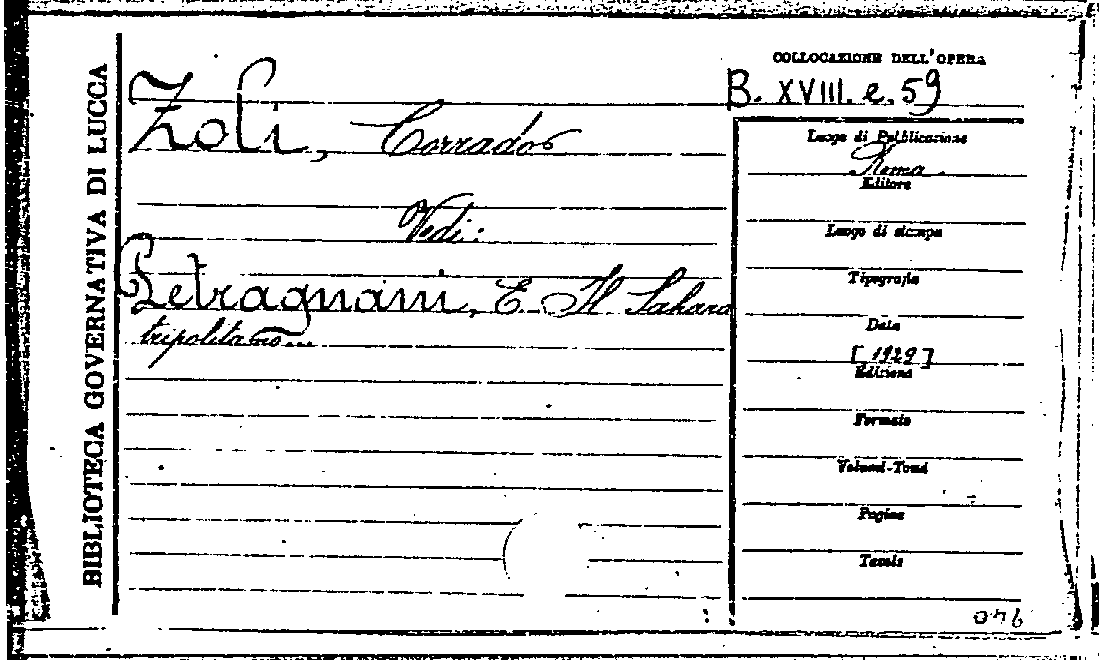 BIBLIOTECA GOVERNATIVA DI LUCCA
Zoli, Corrado
Vedi:
Petragnani, E. Il Sahara
tripolitano...
COLLOCAZIONE DELL'OPERA
B. XVIII. e. 59
Luogo di Pubblicazione
Roma
Editore
Luogo di stampa
Tipografia
Data
[1929]
Edizione
Formato
Volumi-Tomi
Pagine
Tavole